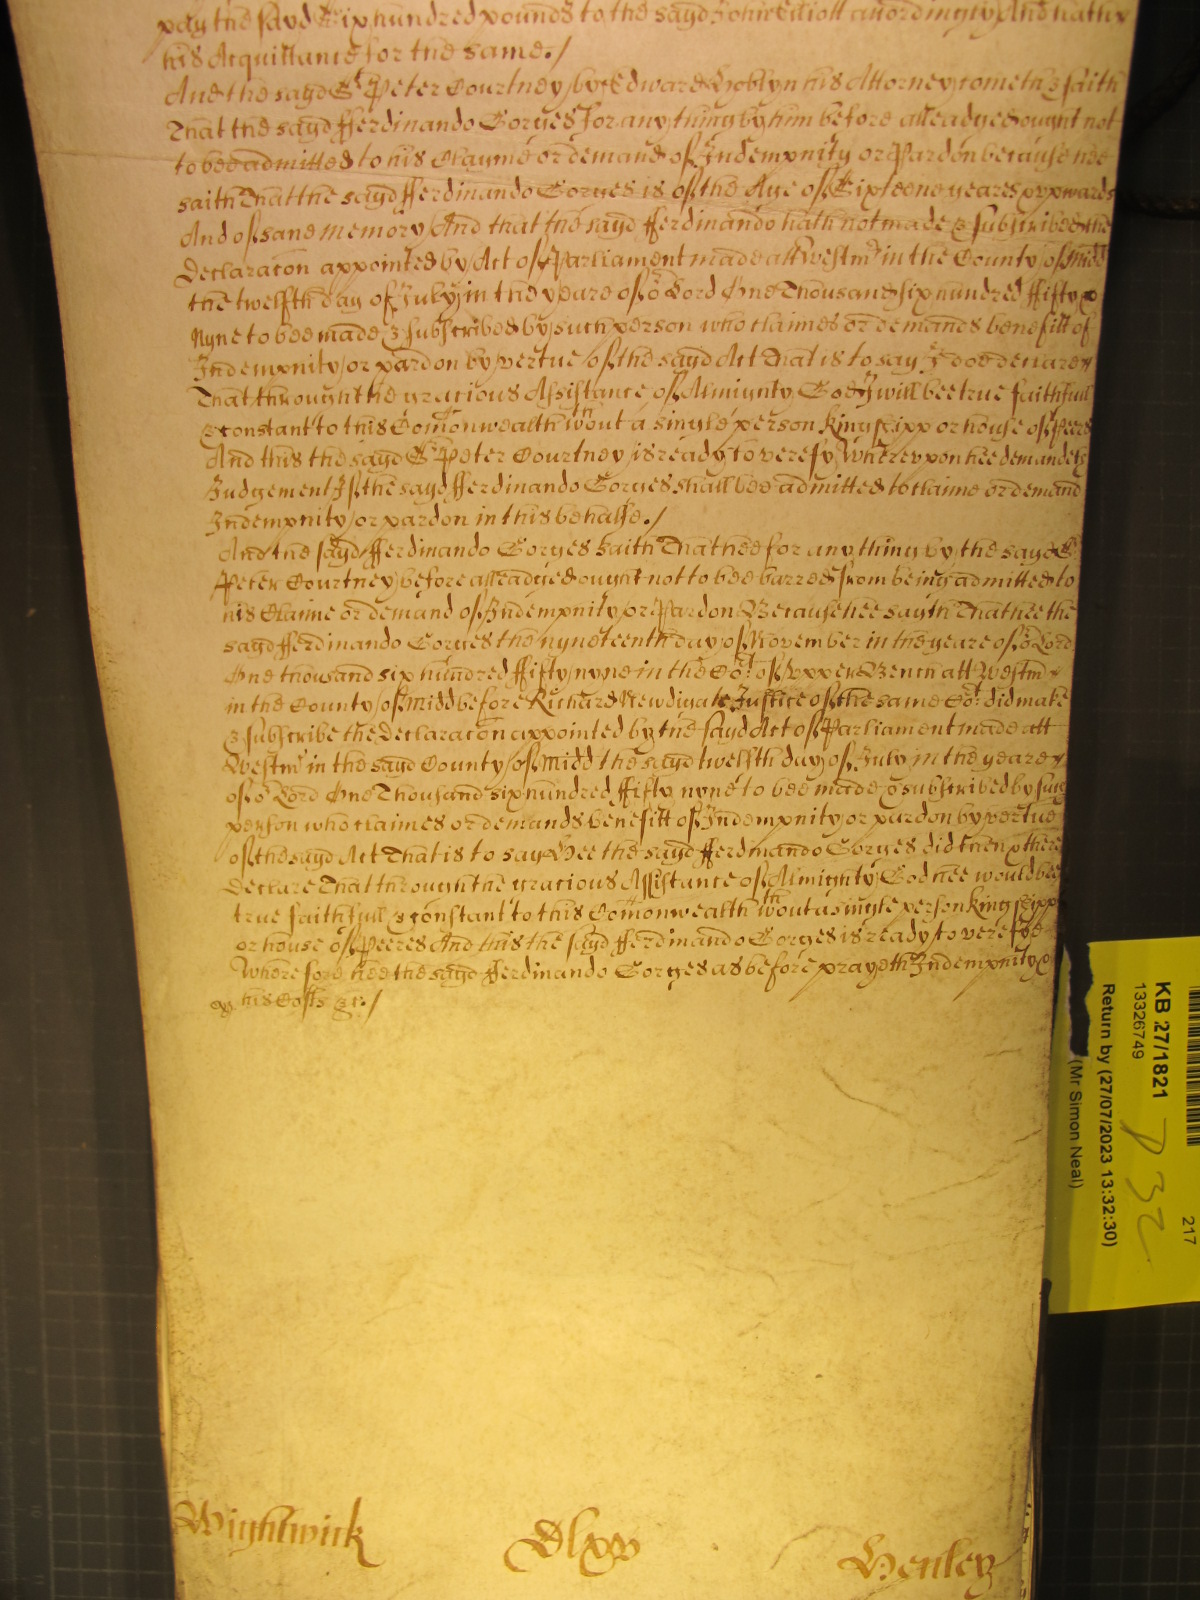 pay the sayd Six hundred pounds to the sayd John Elliott accordingly And hath
his Acquittance for the same./
And the sayd Sr Peter Courtney by Edward Hoblyn his Attorney cometh & saith
That the sayd Fferdinando Gorges for any thing by him before alleadged ought not
to bee admitted to his Clayme or demand of Indempnity or Pardon because hee
saith That the sayd Fferdinando Gorges is of the Age of Sixteene yeares & upwards
And of sane memory And that the sayd Fferdinando hath not made & subscribed the
Declaracon appointed by Act of Parliament made att Westmr in the County of Midd
the twelfth day of July in the yeare of or Lord One Thousand six hundred Fifty
Nyne to bee made & subscribed by such person who claimes or demands benefitt of
Indempnity or pardon by vertue of the sayd Act That is to say I doe declare
That through the gracious Assistance of Almighty God I will bee true faithfull
& constant to this Comonwealth wthout a single person kingshipp or house of Peers
And this the sayd Sr Peter Courtney is ready to verefy Whereupon hee demandeth
Judgement If the sayd Fferdinando Gorges shall bee admitted to claime or demand
Indempnity or pardon in this behalfe./
And the sayd Fferdinando Gorges saith That hee for any thing by the sayd Sr
Peter Courtney before alleadged ought not to bee barred from being admitted to
his Claime or demand of Indempnity or Pardon Because hee sayth That hee the
sayd Fferdinando Gorges the nyneteenth day of November in the yeare of or Lord
One thousand six hundred ffifty nyne in the Cot of Upper Bench att Westmr
in the County of Midd before Richard Newdigate Justice of the same Cot did make
& subscribe the Declaracon appointed by the sayd Act of Parliament made att
Westmr in the sayd County of Midd the sayd twelfth day of July in the yeare
of or Lord One Thousand six hundred ffifty nyne to bee made & subscribed by such
person who claimes or demands benefitt of Indempnity or pardon by vertue
of the sayd Act That is to say Hee the sayd Fferdinando Gorges did then & there
Declare That through the gracious Assistance of Almighty God hee would bee
true faithfull & constant to this Comonwealth wthout a single person kingshipp
or house of Peeres And this the sayd Fferdinando Gorges is ready to verefye
Wherefore hee the sayd Fferdinando Gorges as before prayeth Indempnity &
his Costs &c./
Wightwick
Dlxv
Henley
KB 27/1821
13326749
Return by (27/07/2023 13:32:30)
(Mr Simon Neal)
217
P 32